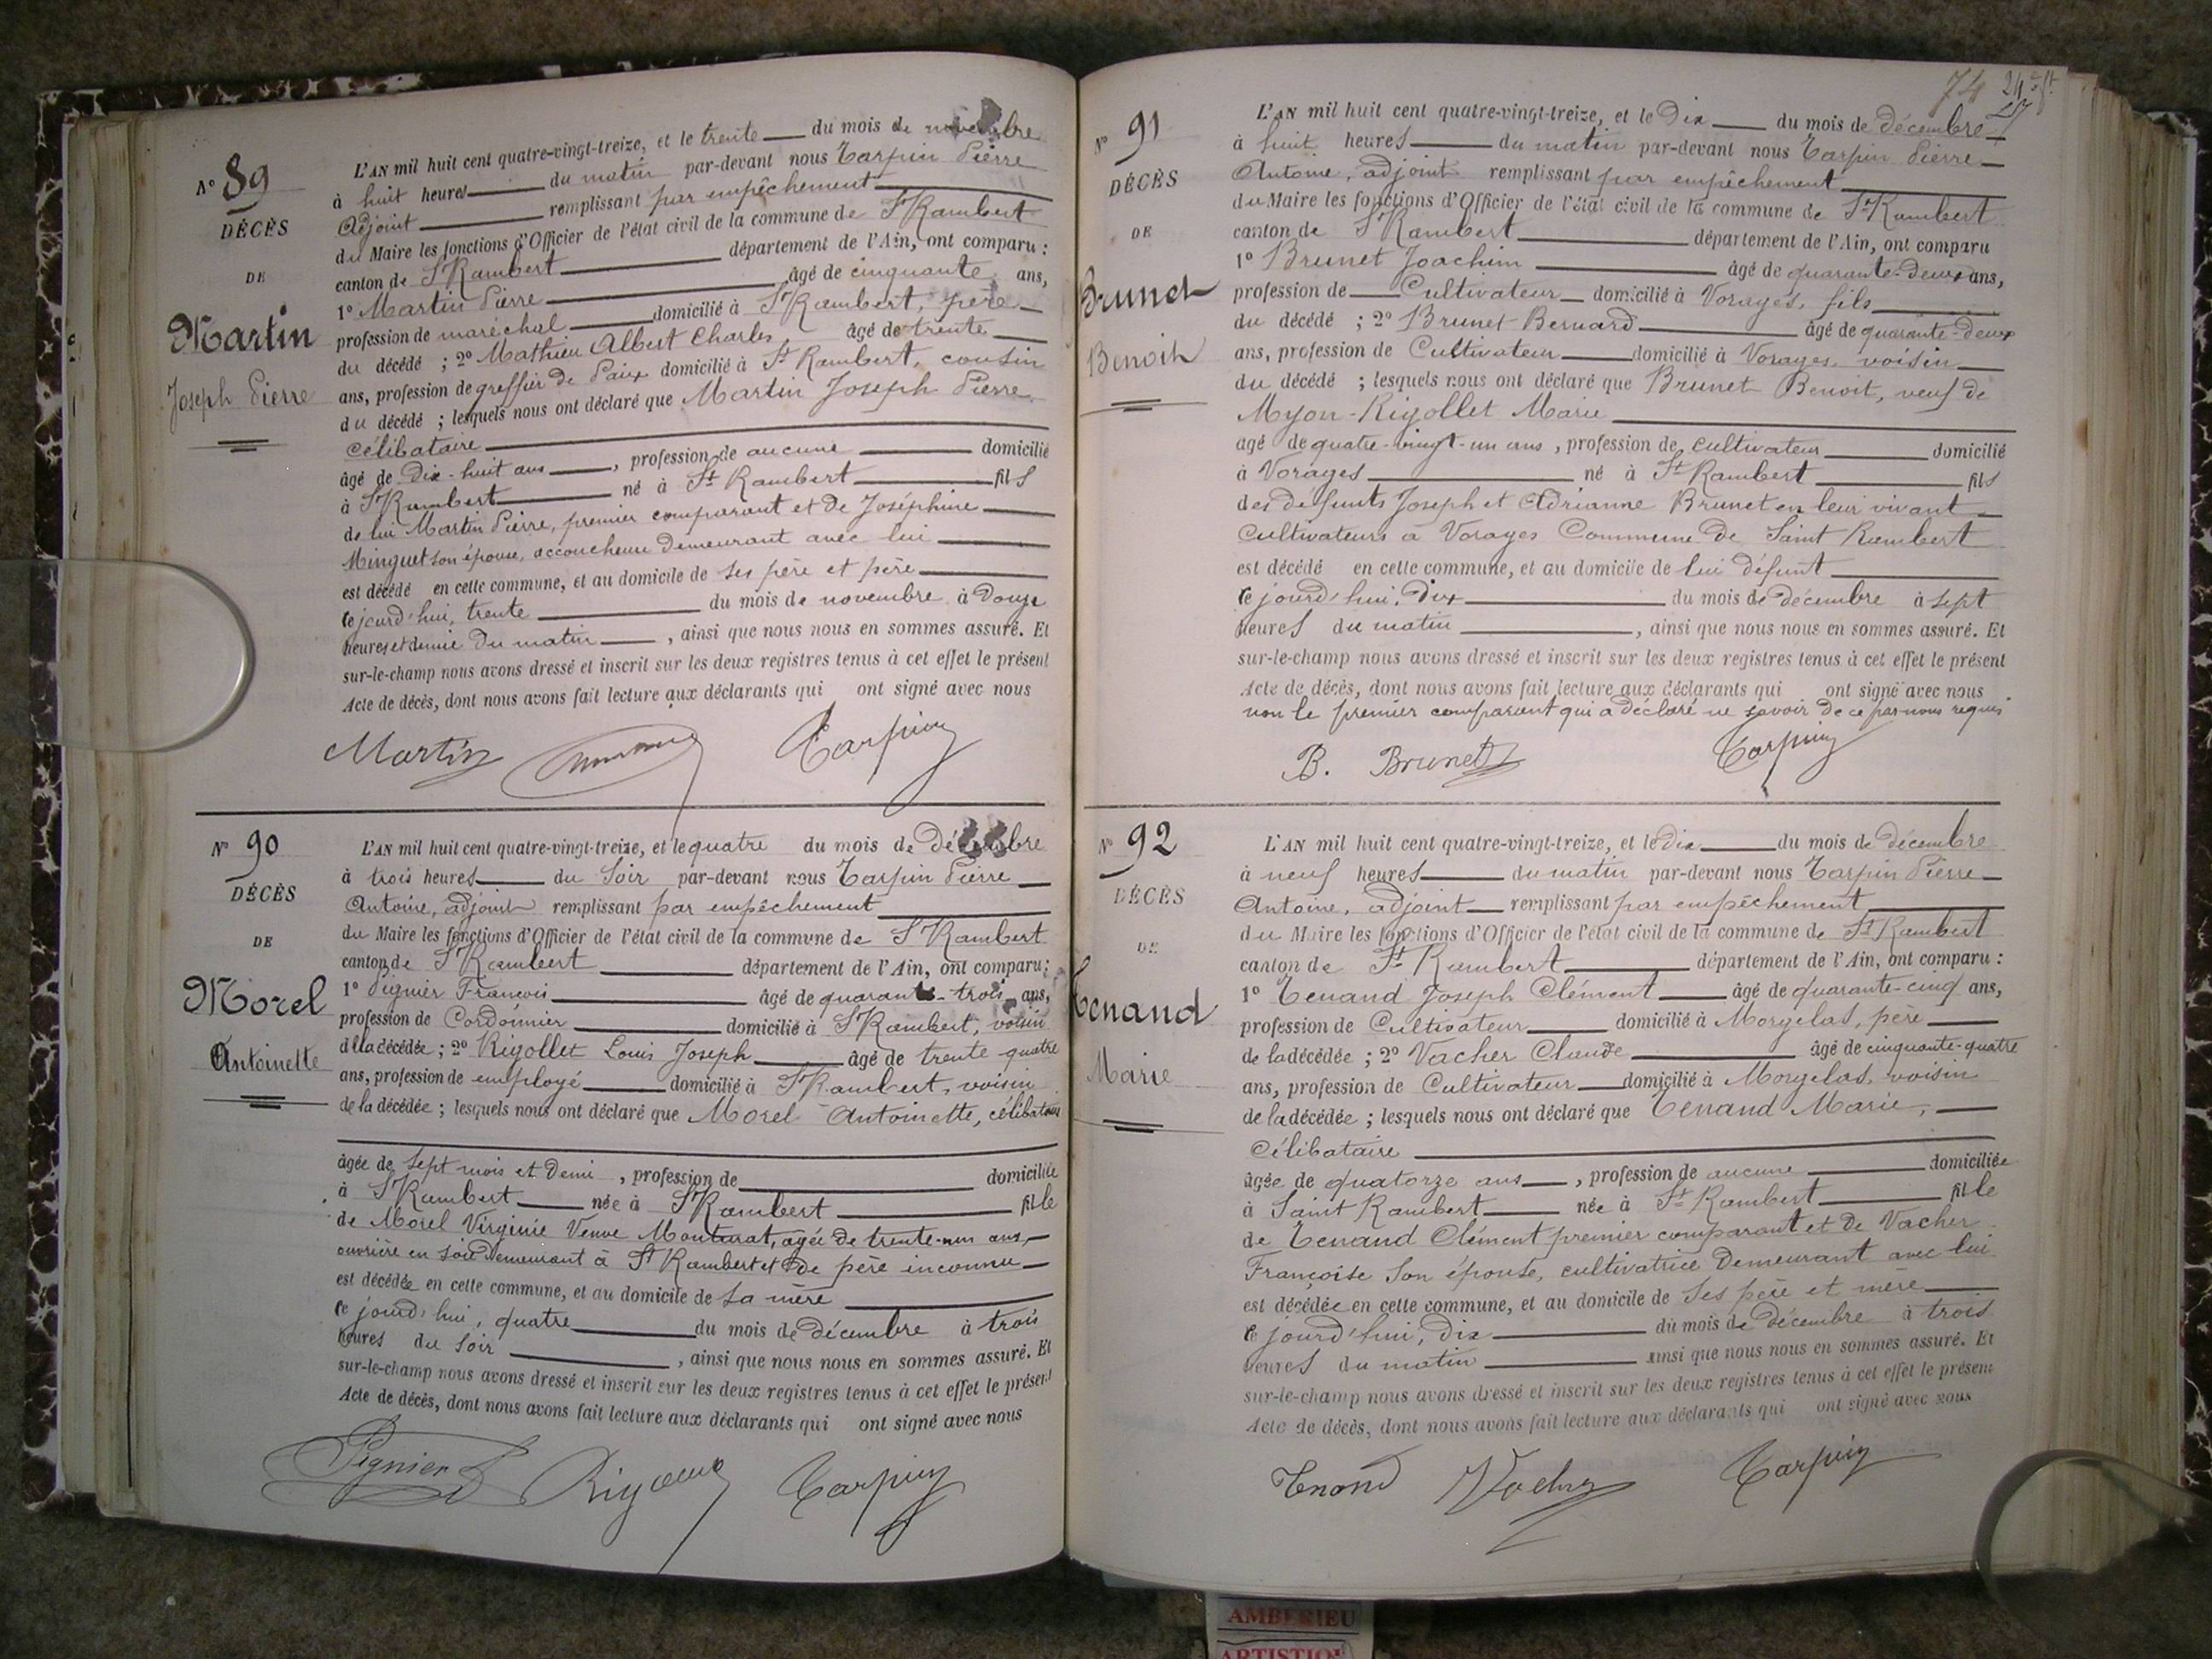 N° 89
DÉCÈS
DE
Martin
Joseph Pierre
L'AN mil huit cent quatre-vingt-treize, et le trente du mois de novembre
à huit heures du matin par-devant nous Tarpin Pierre
Adjoint remplissant par empêchement
du Maire les fonctions d'Officier de l'état civil de la commune de St Rambert
canton de St Rambert département de l'Ain, ont comparu :
1° Martin Pierre âgé de cinquante ans,
profession de maréchal domicilié à St Rambert, père
du décédé ; 2° Mathieu Albert Charles âgé de trente
ans, profession de greffier de Paix domicilié à St Rambert, cousin
du décédé ; lesquels nous ont déclaré que Martin Joseph Pierre
célibataire
âgé de Dix-huit ans, profession de aucune domicilié
à St Rambert né à St Rambert fils
de lui Martin Pierre, premier comparant et de Joséphine
Minguet son épouse, accoucheuse demeurant avec lui
est décédé en cette commune, et au domicile de ses père et père
ce jourd'hui, trente du mois de novembre à Douze
heures et demie du matin, ainsi que nous nous en sommes assuré. Et
sur-le-champ nous avons dressé et inscrit sur les deux registres tenus à cet effet le présent
Acte de décès, dont nous avons fait lecture aux déclarants qui ont signé avec nous
Martin Tarpin
N° 90
DÉCÈS
DE
Morel
Antoinette
L'AN mil huit cent quatre-vingt-treize, et le quatre du mois de Décembre
à trois heures du soir par-devant nous Tarpin Pierre
Antoine, adjoint remplissant par empêchement
du Maire les fonctions d'Officier de l'état civil de la commune de St Rambert
canton de St Rambert département de l'Ain, ont comparu :
1° Pignier François âgé de quarante-trois ans,
profession de Cordonnier domicilié à St Rambert, voisin
de la décédée ; 2° Rigollet Louis Joseph âgé de trente quatre
ans, profession de employé domicilié à St Rambert, voisin
de la décédée ; lesquels nous ont déclaré que Morel Antoinette, célibataire
âgée de sept mois et Demi, profession de domiciliée
à St Rambert née à St Rambert fille
de Morel Virginie Veuve Monturat, agée de trente-un ans,
ouvrière en soie demeurant à St Rambert et de père inconnu
est décédée en cette commune, et au domicile de sa mère
ce jourd'hui, quatre du mois de décembre à trois
heures du soir, ainsi que nous nous en sommes assuré. Et
sur-le-champ nous avons dressé et inscrit sur les deux registres tenus à cet effet le présent
Acte de décès, dont nous avons fait lecture aux déclarants qui ont signé avec nous
Pignier Tarpin
74
N° 91
DÉCÈS
DE
Brunet
Benoit
L'AN mil huit cent quatre-vingt-treize, et le Dix du mois de décembre
à huit heures du matin par-devant nous Tarpin Pierre
Antoine, adjoint remplissant par empêchement
du Maire les fonctions d'Officier de l'état civil de la commune de St Rambert
canton de St Rambert département de l'Ain, ont comparu
1° Brunet Joachim âgé de quarante-deux ans,
profession de Cultivateur domicilié à Vorages, fils
du décédé ; 2° Brunet Bernard âgé de quarante-deux
ans, profession de Cultivateur domicilié à Vorages, voisin
du décédé ; lesquels nous ont déclaré que Brunet Benoit, veuf de
Myon-Rigollet Marie
agé de quatre-vingt-un ans, profession de cultivateur domicilié
à Vorages né à St Rambert fils
des defunts Joseph et Adrianne Brunet en leur vivant
Cultivateurs à Vorages Commune de Saint Rambert
est décédé en cette commune, et au domicile de lui défunt
ce jourd'hui, Dix du mois de décembre à sept
heures du matin, ainsi que nous nous en sommes assuré. Et
sur-le-champ nous avons dressé et inscrit sur les deux registres tenus à cet effet le présent
Acte de décès, dont nous avons fait lecture aux déclarants qui ont signé avec nous
non le premier comparant qui a déclaré ne savoir de ce par nous requis
B. Brunet Tarpin
N° 92
DÉCÈS
DE
Tenand
Marie
L'AN mil huit cent quatre-vingt-treize, et le Dix du mois de décembre
à neuf heures du matin par-devant nous Tarpin Pierre
Antoine, adjoint remplissant par empêchement
du Maire les fonctions d'Officier de l'état civil de la commune de St Rambert
canton de St Rambert département de l'Ain, ont comparu :
1° Tenand Joseph Clément âgé de quarante-cinq ans,
profession de Cultivateur domicilié à Morgelas, père
de la décédée ; 2° Vacher Claude âgé de cinquante-quatre
ans, profession de Cultivateur domicilié à Morgelas, voisin
de la décédée ; lesquels nous ont déclaré que Tenand Marie,
Célibataire
âgée de quatorze ans, profession de aucune domiciliée
à Saint Rambert née à St Rambert fille
de Tenand Clément premier comparant et de Vacher
Françoise son épouse, cultivatrice demeurant avec lui
est décédée en cette commune, et au domicile de ses père et mère
ce jourd'hui, dix du mois de décembre à trois
heures du matin ainsi que nous nous en sommes assuré. Et
sur-le-champ nous avons dressé et inscrit sur les deux registres tenus à cet effet le présent
Acte de décès, dont nous avons fait lecture aux déclarants qui ont signé avec nous
Tenand Vacher Tarpin
AMBERIEU